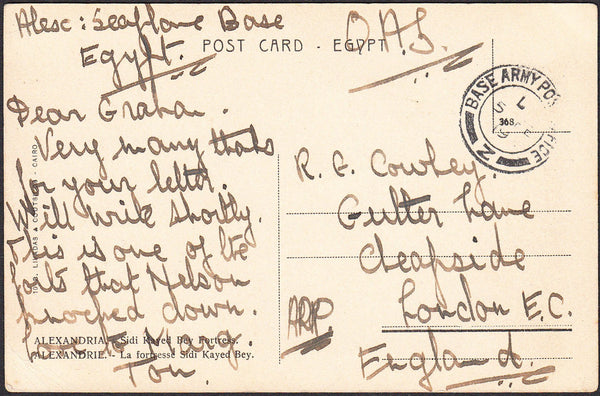 Alesc: Seaplane Base
Egypt.
O.A.S.
POST CARD - EGYPT
BASE ARMY POST OFFICE
Z
368
Dear Graham.
Very many thaks
for your letter.
Will write shortly.
This is one of the
forts that Nelson
knocked down.
Love
Tom.
R. G. Cowley.
Gutter Lane
Cheapside
London E.C.
England.
ARP
CAIRO
ALEXANDRIA. - Sidi Kayed Bey Fortress.
ALEXANDRIE. - La forteresse Sidi Kayed Bey.